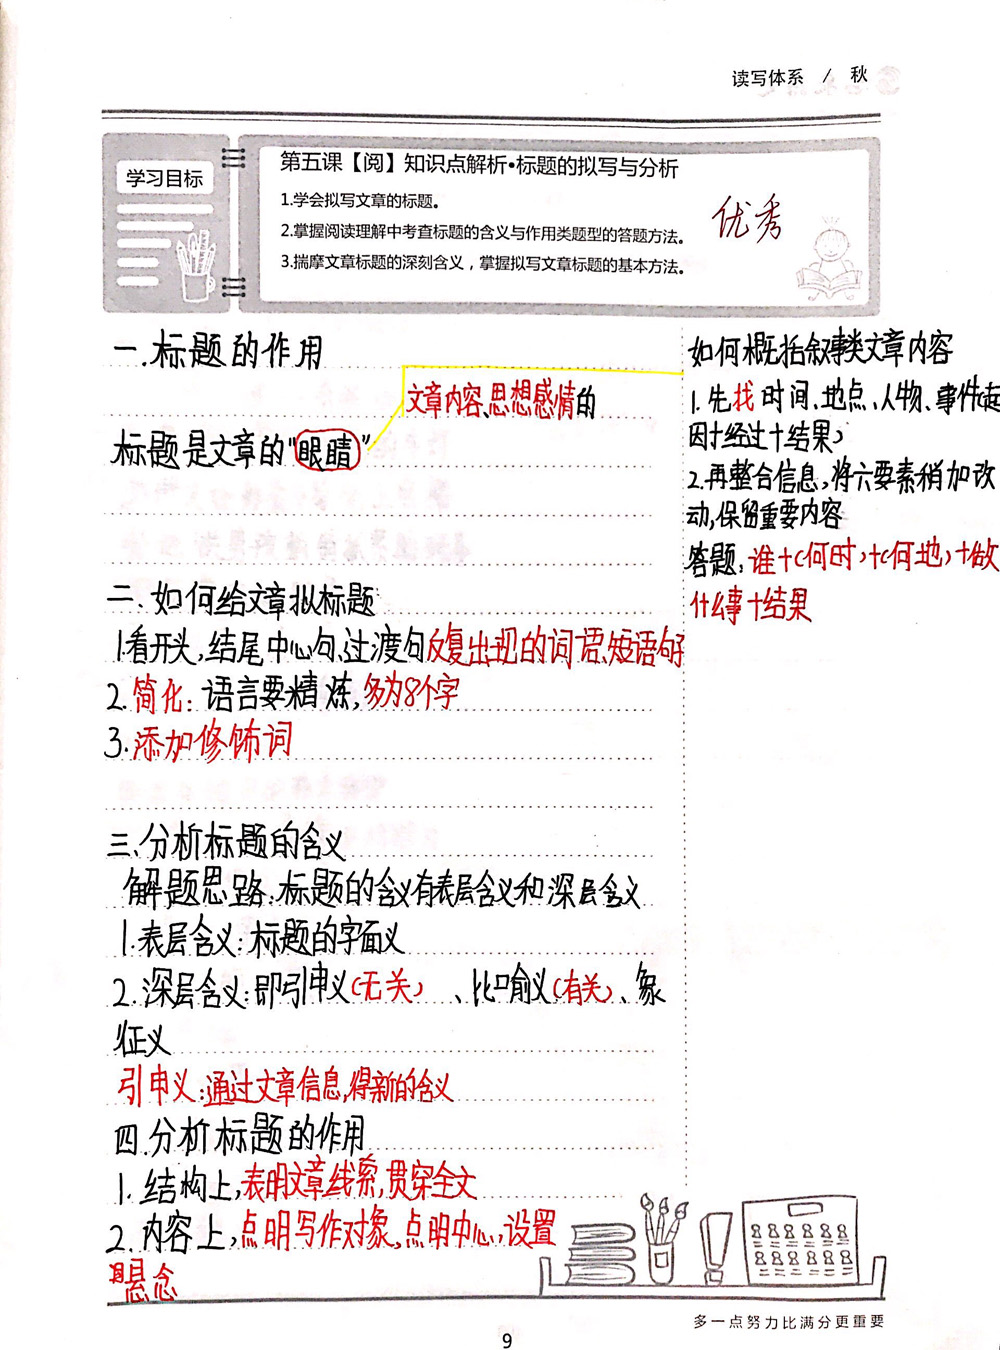 读写体系 / 秋
学习目标
第五课【阅】知识点解析•标题的拟写与分析
1.学会拟写文章的标题。
2.掌握阅读理解中考查标题的含义与作用类题型的答题方法。
3.揣摩文章标题的深刻含义，掌握拟写文章标题的基本方法。
优秀
一.标题的作用
文章内容、思想感情的
标题是文章的“眼睛”
二、如何给文章拟标题
1.看开头,结尾中心句、过渡句反复出现的词语、短语句子
2.简化：语言要精炼,多为8个字
3.添加修饰词
三、分析标题的含义
解题思路:标题的含义有表层含义和深层含义
1.表层含义:标题的字面义
2.深层含义:即引申义(无关)、比喻义(有关)、象
征义
引申义:通过文章信息,得新的含义
四.分析标题的作用
1.结构上,表明文章线索,贯穿全文
2.内容上,点明写作对象,点明中心,设置
悬念
如何概括叙事类文章内容
1.先找时间、地点、人物、事件(起
因+经过+结果)
2.再整合信息,将六要素稍加改
动,保留重要内容
答题:谁+(何时)+(何地)+做
什么事+结果
多一点努力比满分更重要
9